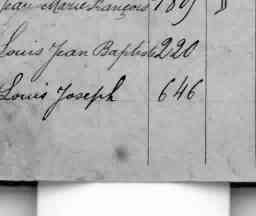 Jean Marie François 1809 "
Louis Jean Baptiste 220
Louis Joseph 646